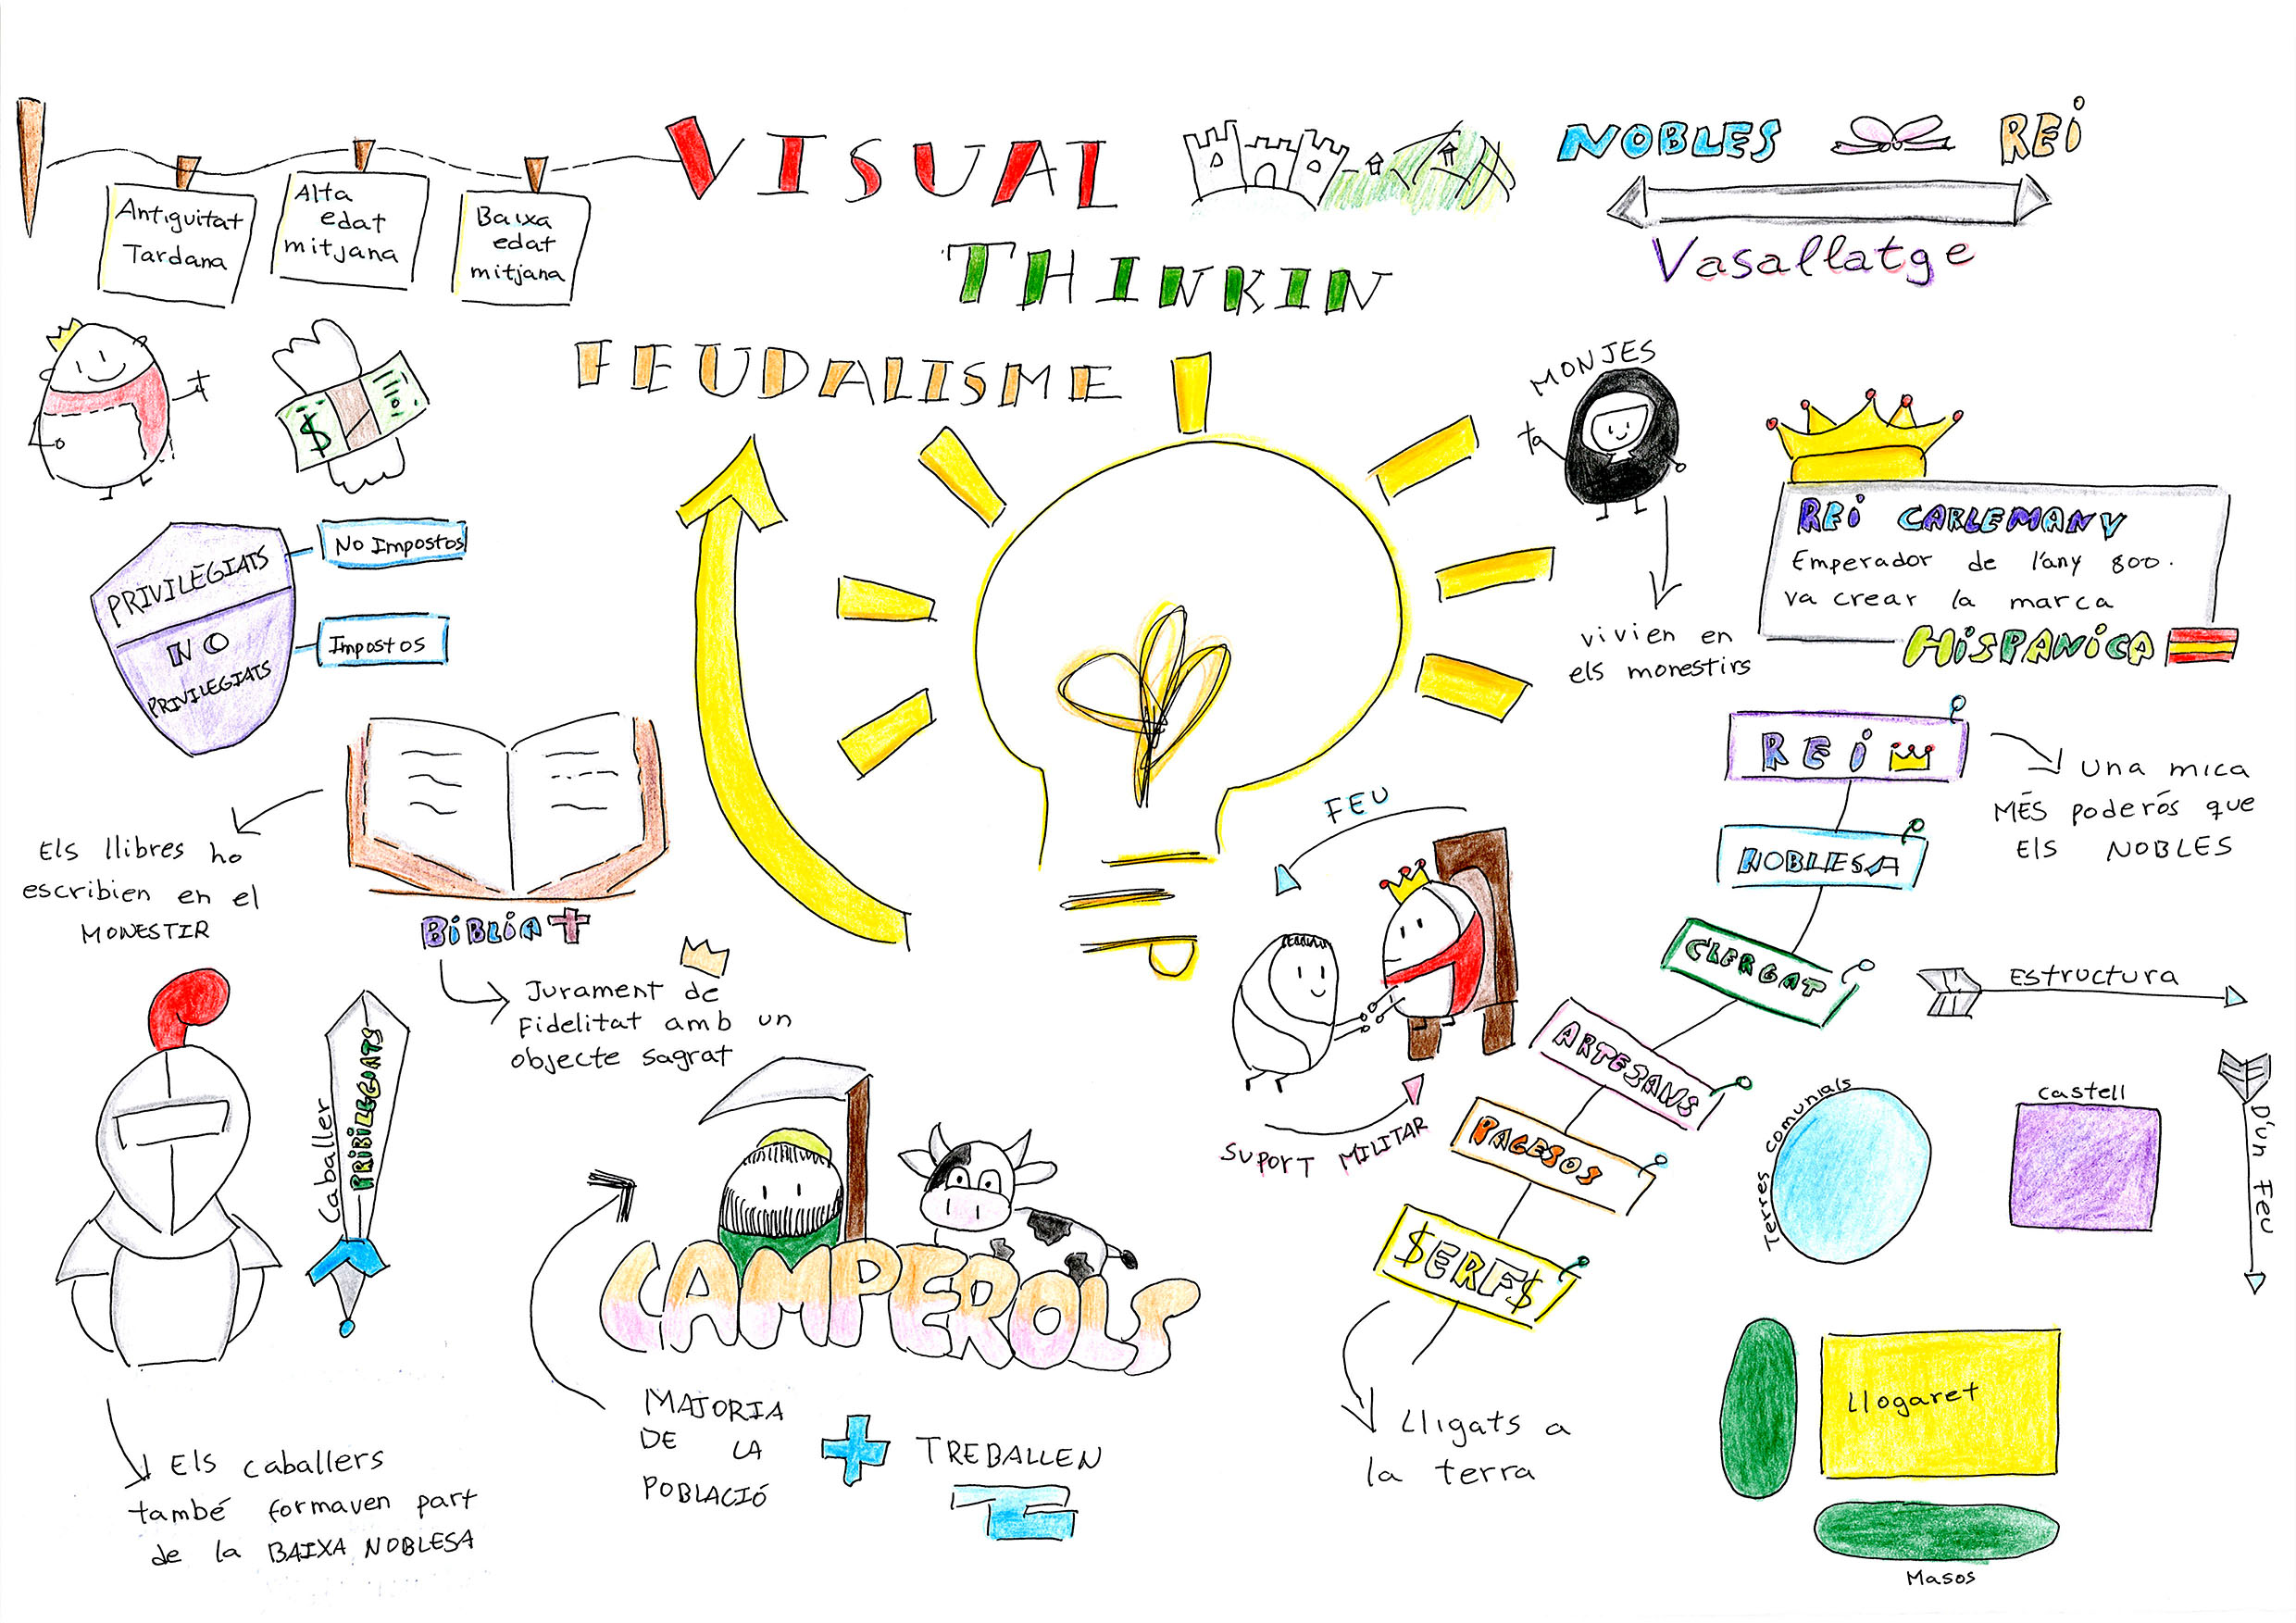 VISUAL
THINKIN
FEUDALISME
Antiguitat
Tardana
Alta
edat
mitjana
Baixa
edat
mitjana
NOBLES
REi
Vasallatge
PRIVILEGIATS
NO
PRIVILEGIATS
No Impostos
Impostos
Els llibres ho
escribien en el
MONESTIR
BiBLiA
Jurament de
Fidelitat amb un
objecte sagrat
MONJES
vivien en
els monestirs
REi CARLEMANY
Emperador de l'any 800.
va crear la marca
HiSPANiCA
REi
Una mica
MÉS poderós que
Els NOBLES
NOBLESA
CLERGAT
ARTESANS
PAGESOS
$ERF$
Lligats a
la terra
FEU
SUPORT MILITAR
Estructura
D'un Feu
Terres comunials
Castell
Llogaret
Masos
Caballer
PRIBILEGIATS
Els caballers
també formaven part
de la BAIXA NOBLESA
CAMPEROLS
MAJORIA
DE LA
POBLACIÓ
TREBALLEN